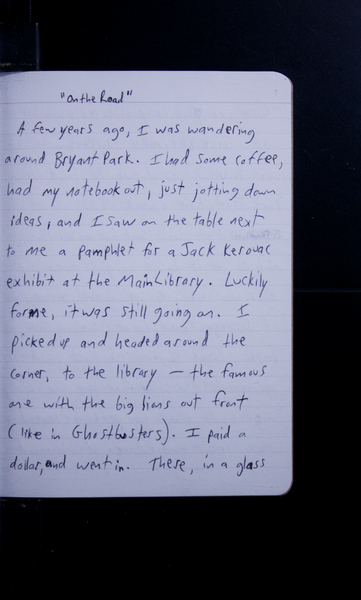 "On the Road"
A few years ago, I was wandering
around Bryant Park. I had some coffee,
had my notebook out, just jotting down
ideas, and I saw on the table next
to me a pamphlet for a Jack Kerouac
exhibit at the Main Library. Luckily
for me, it was still going on. I
picked up and headed around the
corner, to the library — the famous
one with the big lions out front
(like in Ghostbusters). I paid a
dollar, and went in. There, in a glass